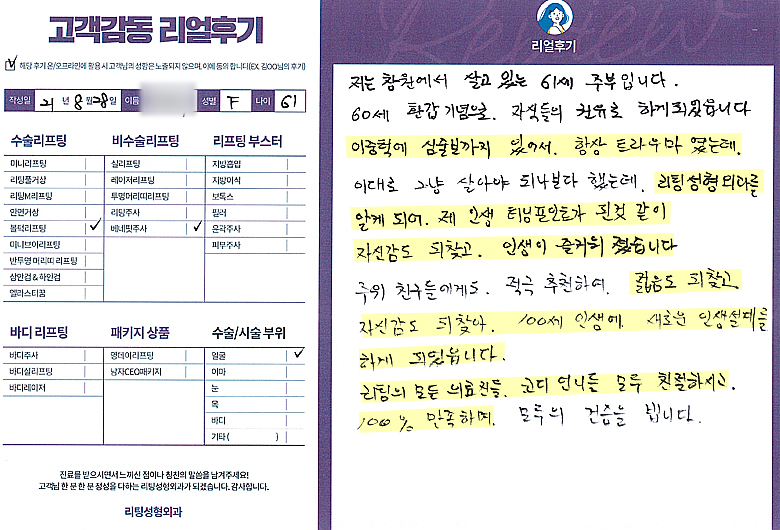 고객감동 리얼후기
해당 후기 온/오프라인에 활용 시 고객님의 성함은 노출되지 않으며, 이에 동의 합니다(EX. 김OO님의 후기)
작성일 21년 8월 28일 이름 성별 F 나이 61
수술리프팅
미니리프팅
리팅풀거상
리팅M리프팅
안면거상
볼턱리프팅 ✓
미니브이리프팅
반투명 머리띠 리프팅
상안검 & 하안검
엘라스티꿈
비수술리프팅
실리프팅
레이저리프팅
투명머리띠리프팅
리팅주사
베네핏주사 ✓
리프팅 부스터
지방흡입
지방이식
보톡스
필러
윤곽주사
피부주사
바디 리프팅
바디주사
바디실리프팅
바디레이저
패키지 상품
영데이리프팅
남자CEO패키지
수술/시술 부위
얼굴 ✓
이마
눈
목
바디
기타 ( )
진료를 받으시면서 느끼신 점이나 칭찬의 말씀을 남겨주세요!
고객님 한 분 한 분 정성을 다하는 리팅성형외과가 되겠습니다. 감사합니다.
리팅성형외과
Review
리얼후기
저는 창원에서 살고 있는 61세 주부입니다.
60세 환갑 기념으로. 자식들의 권유로 하게되었습니다
이중턱에 심술보까지 있어서. 항상 트라우마 였는데.
이대로 그냥 살아야 되나보다 했는데. 리팅성형외과를
알게 되어. 제 인생 터닝포인트가 된것 같이
자신감도 되찾고. 인생이 즐거워 졌습니다
주위 친구들에게도. 적극 추천하며. 젊음도 되찾고
자신감도 되찾아. 100세 인생에. 새로운 인생설계를
하게 되었읍니다.
리팅의 모든 의료진들. 코디 언니들 모두 친절하시고.
100% 만족하며. 모두의 건승을 빕니다.